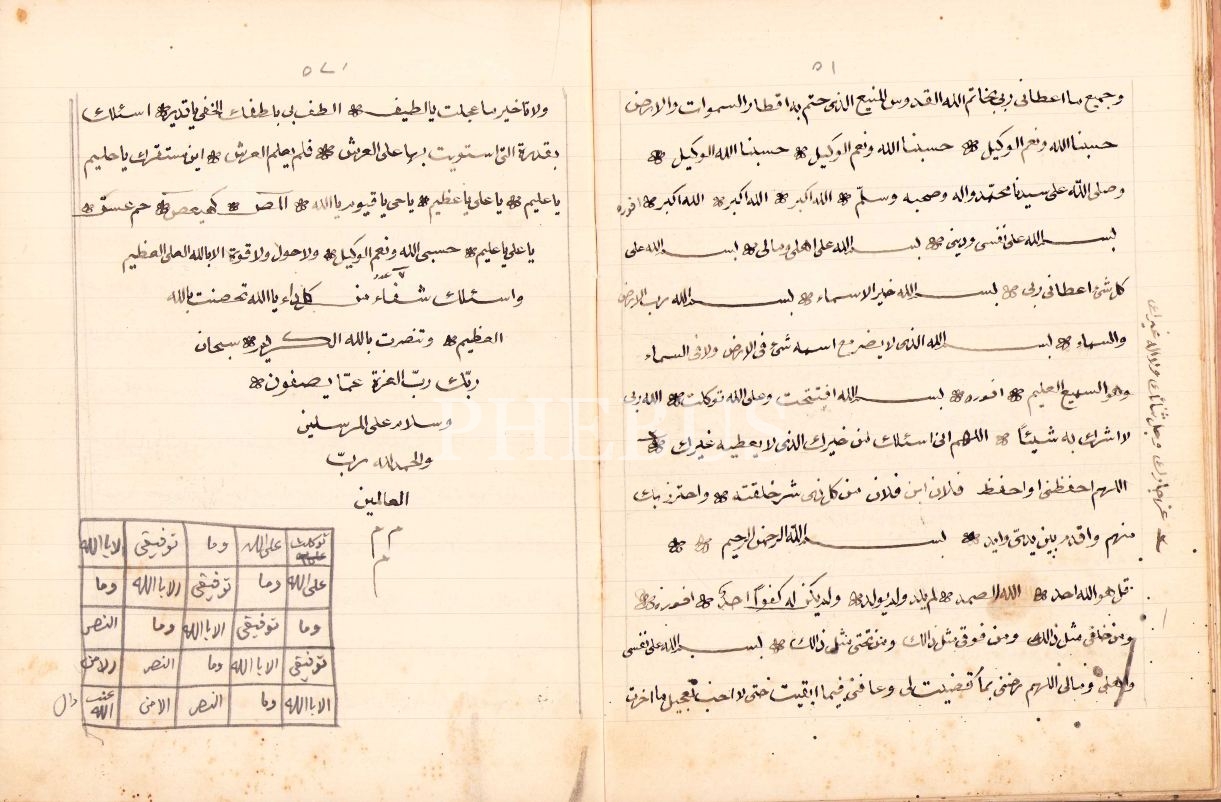 ٥١
وجميع ما اعطانى ربى بخاتم الله القدوس المنيع الذى ختم به اقطار السموات والارض
حسبنا الله ونعم الوكيل ❀ حسبنا الله ونعم الوكيل ❀ حسبنا الله الوكيل ❀
وصلى الله على سيدنا محمد واله وصحبه وسلم ❀ الله اكبر ❀ الله اكبر ❀ الله اكبر ❀
بسم الله على نفسى ودينى ❀ بسم الله على اهلى ومالى ❀ بسم الله على
كل شئ اعطانى ربى ❀ بسم الله خير الاسماء ❀ بسم الله رب الارض
والسماء ❀ بسم الله الذى لا يضر مع اسمه شئ فى الارض ولا فى السماء
وهو السميع العليم ❀ بسم الله افتتحت وعلى الله توكلت ❀ الله ربى
لا اشرك به شيئاً ❀ اللهم انى اسئلك من خيرك الذى لا يعطيه غيرك ❀
عز جارك وجل ثنائك ولا اله غيرك
اللهم احفظنى واحفظ فلان ابن فلان من كل ذى شر خلقته ❀ واحترز بك
منهم واقدم بين يدى ❀ بسم الله الرحمن الرحيم ❀ ❀
قل هو الله احد ❀ الله الصمد ❀ لم يلد ولم يولد ❀ ولم يكن له كفواً احد ❀
ومن خلفى مثل ذلك ومن فوقى مثل ذلك ومن تحتى مثل ذلك ❀ بسم الله على نفسى
واهلى ومالى اللهم رضنى بما قضيت لى وعافنى فيما ابقيت حتى لا احب تعجيل ما اخرت
٥٢
ولا تاخير ما عجلت يا لطيف ❀ الطف بى بلطفك الخفى يا قدير ❀ اسئلك
بقدرة التى استويت بها على العرش ❀ فلم يعلم العرش ❀ اين مستقرك يا حليم
يا عليم ❀ يا على يا عظيم ❀ يا حى يا قيوم يا الله ❀ المص ❀ كهيعص ❀ حم عسق ❀
يا على يا عليم ❀ حسبى الله ونعم الوكيل ❀ ولا حول ولا قوة الا بالله العلى العظيم
واسئلك شفاء من كل داء يا الله تحصنت بالله
العظيم ❀ وتنصرت بالله الكريم ❀ سبحان
ربك رب العزة عما يصفون ❀
وسلام على المرسلين
والحمد لله رب
العالمين
م م
م
توكلت عليه على الله وما توفيقى الا بالله
على الله وما توفيقى الا بالله وما
وما توفيقى الا بالله وما النصر
توفيقى الا بالله وما النصر الا من
الا بالله وما النصر الا من عند الله
PHEBUS